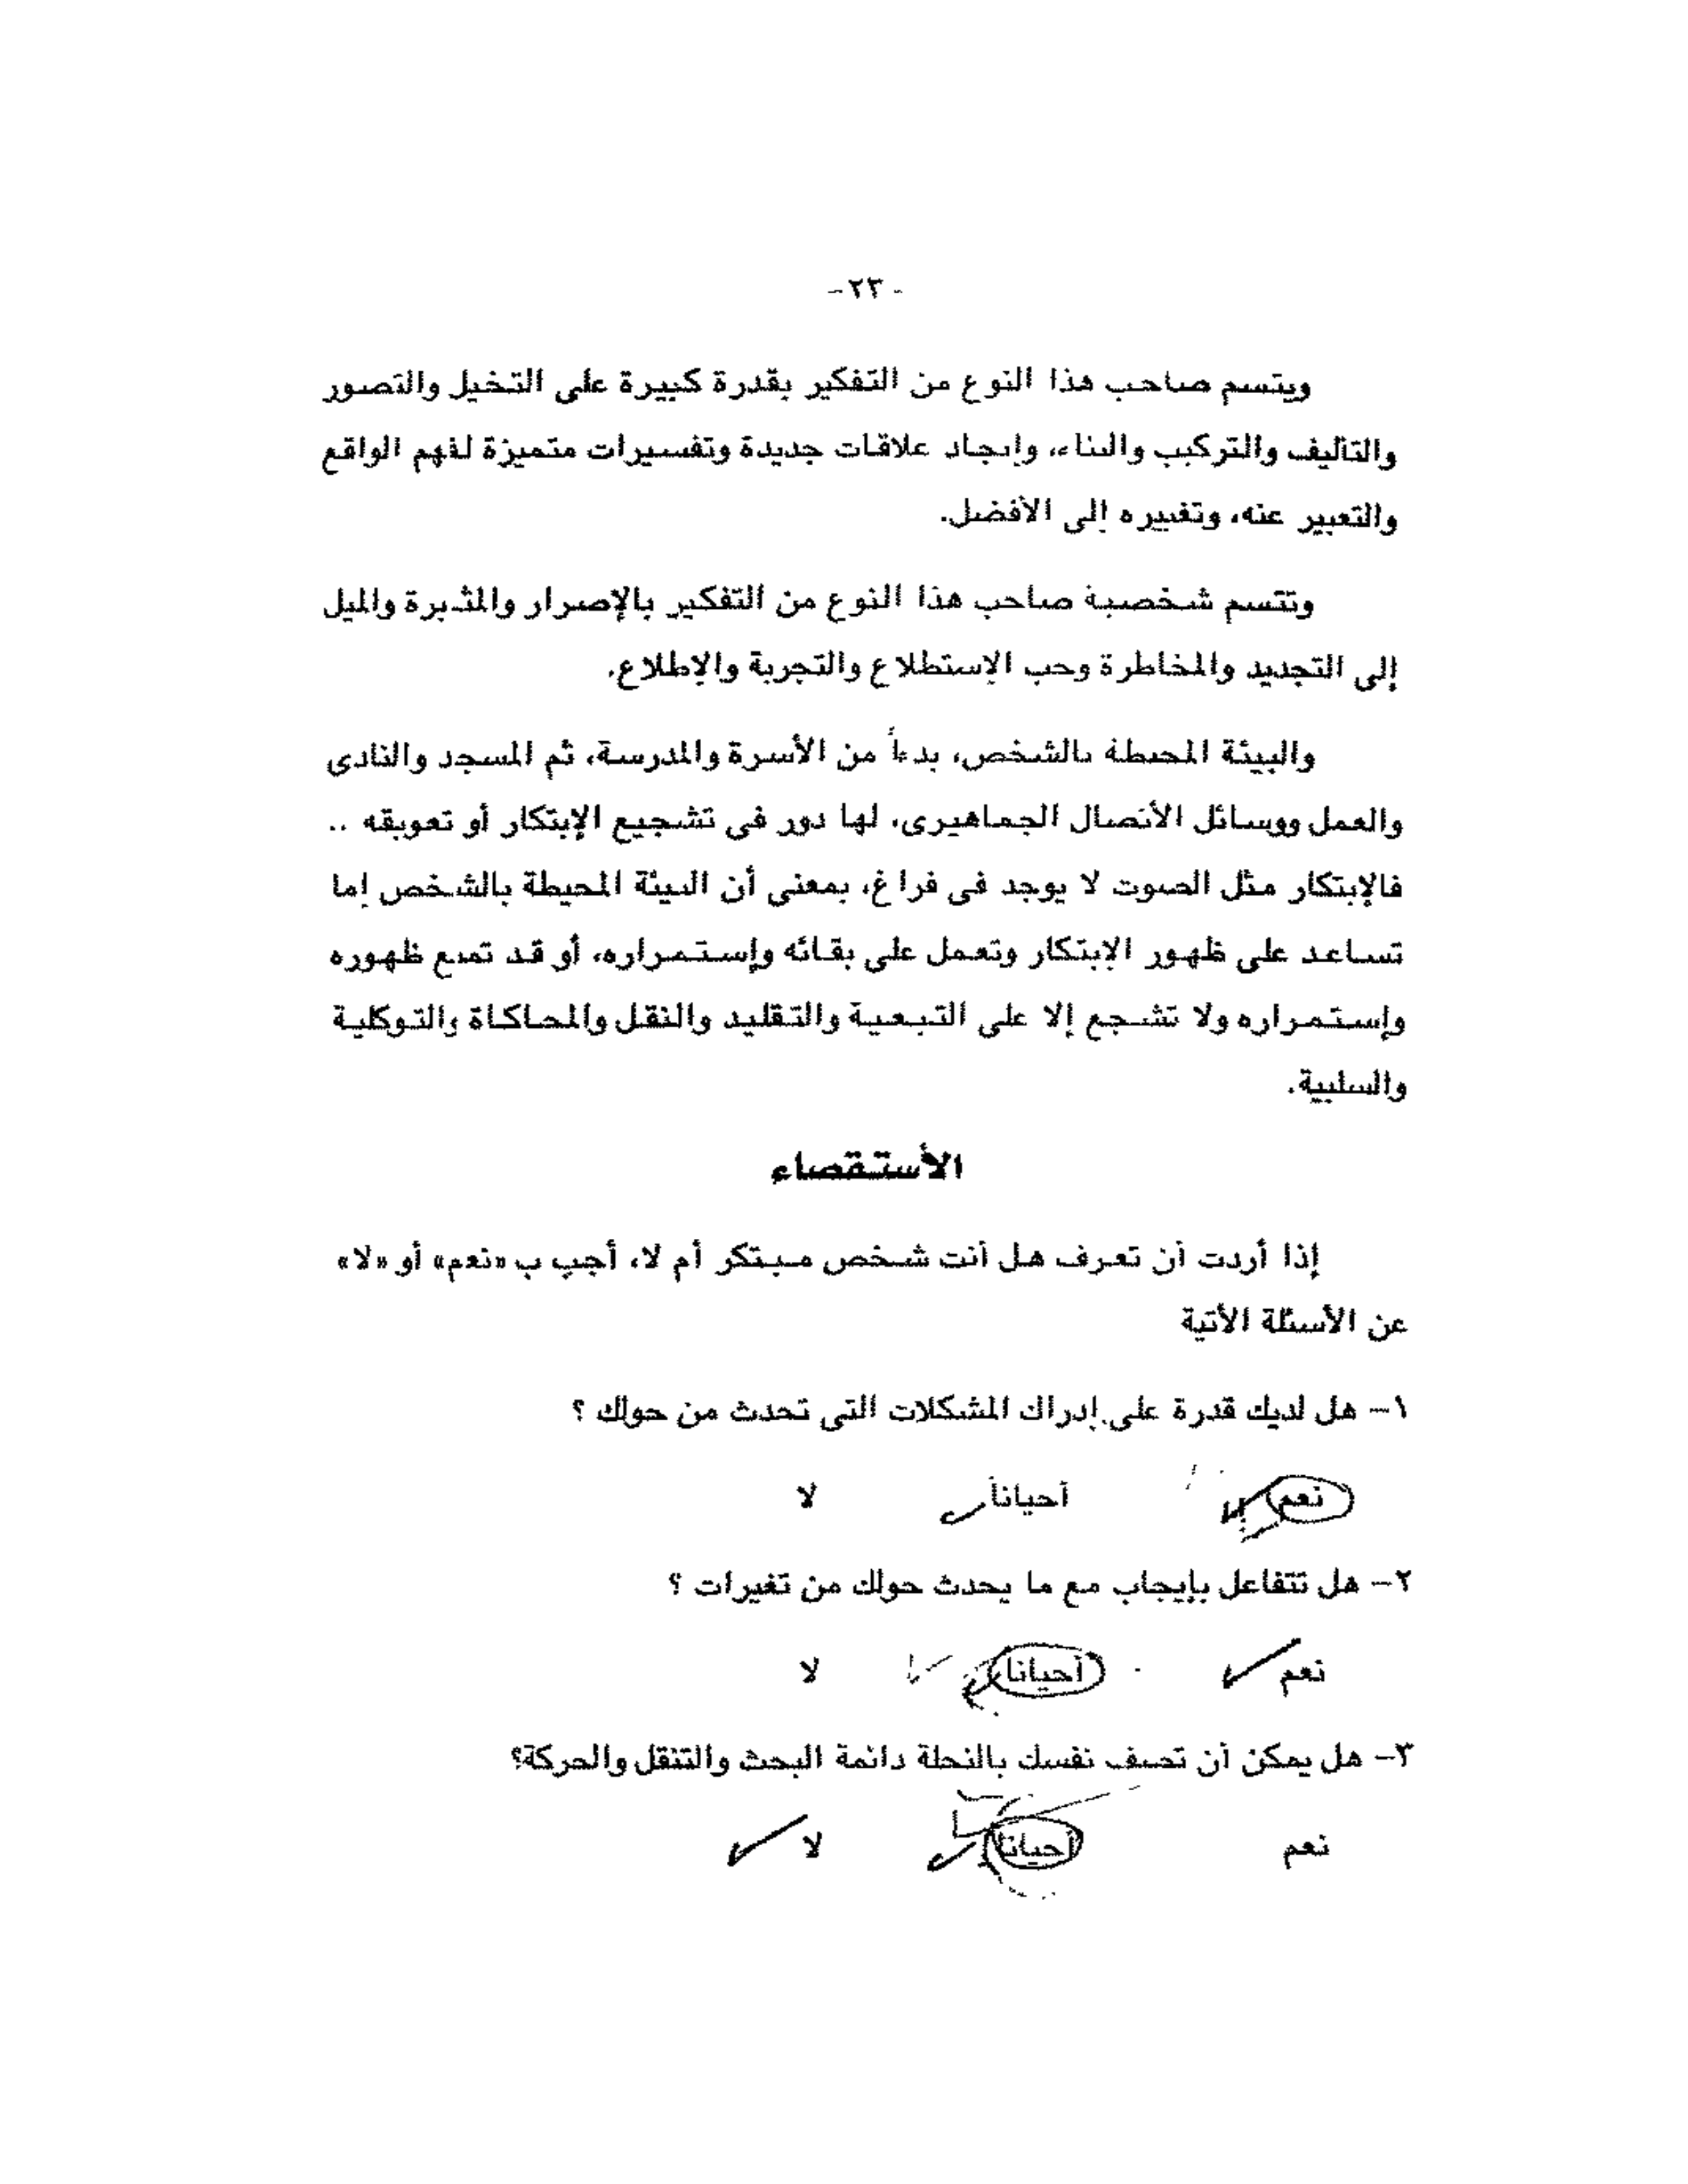 -٢٣-
ويتسم صاحب هذا النوع من التفكير بقدرة كبيرة على التخيل والتصور
والتأليف والتركيب والبناء، وإيجاد علاقات جديدة وتفسيرات متميزة لفهم الواقع
والتعبير عنه، وتغييره إلى الأفضل.
وتتسم شخصية صاحب هذا النوع من التفكير بالإصرار والمثبرة والميل
إلى التجديد والمخاطرة وحب الإستطلاع والتجربة والإطلاع.
والبيئة المحيطة بالشخص، بدءاً من الأسرة والمدرسة، ثم المسجد والنادى
والعمل ووسائل الأتصال الجماهيرى، لها دور فى تشجيع الإبتكار أو تعويقه ..
فالإبتكار مثل الصوت لا يوجد فى فراغ، بمعنى أن البيئة المحيطة بالشخص إما
تساعد على ظهور الإبتكار وتعمل على بقائه وإستمراره، أو قد تمنع ظهوره
وإستمراره ولا تشجع إلا على التبعية والتقليد والنقل والمحاكاة والتوكلية
والسلبية.
الأستقصاء
إذا أردت أن تعرف هل أنت شخص مبتكر أم لا، أجب ب «نعم» أو «لا»
عن الأسئلة الأتية
١- هل لديك قدرة على إدراك المشكلات التى تحدث من حولك ؟
نعم أحياناً لا
٢- هل تتفاعل بإيجاب مع ما يحدث حولك من تغيرات ؟
نعم أحياناً لا
٣- هل يمكن أن تصف نفسك بالنحلة دائمة البحث والتنقل والحركة؟
نعم أحياناً لا